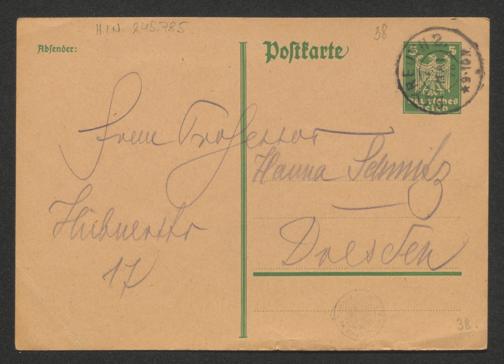 H.I.N. 245.785
38
Absender:
Postkarte
5 5
Deutsches
Reich
2
*9-10V
Frau Professor
Hanna Schmitz
Hübnerstr
17
Dresden
38.